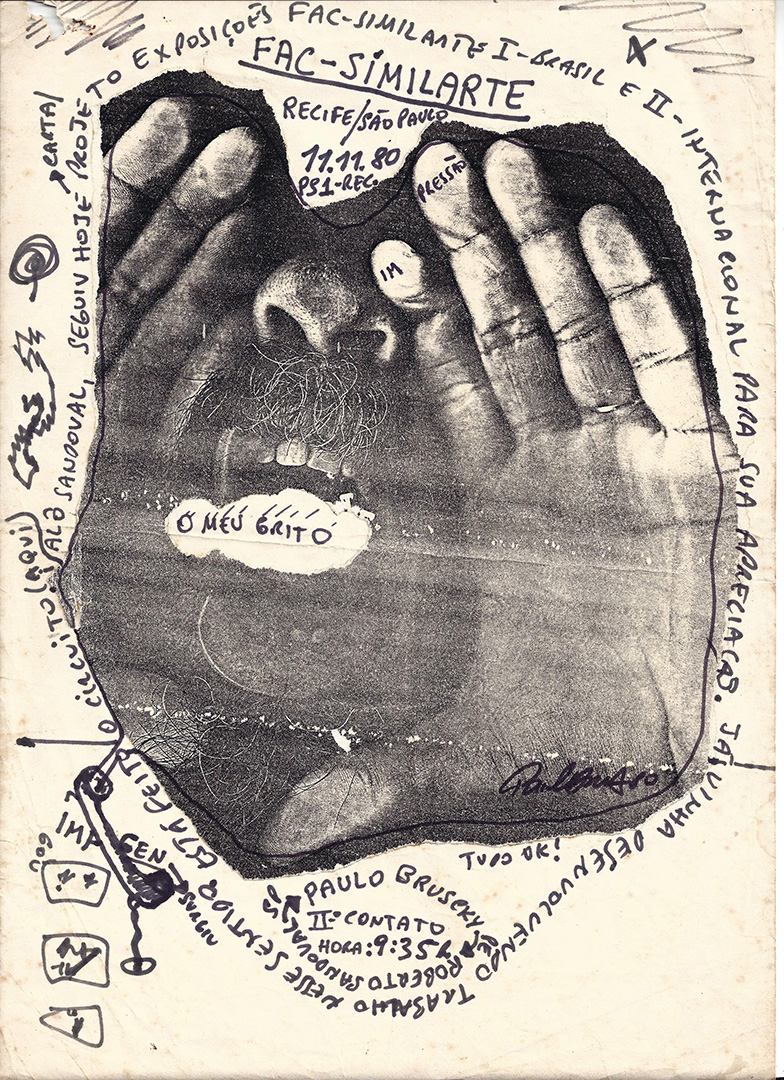 FAC-SÍMILARTE
RECIFE/SÃO PAULO
11.11.80
PS1-REC.
PRESSÃO
IM
O MEU GRITO
CARTA/
ALÔ SANDOVAL, SEGUIU HOJE PROJETO EXPOSIÇÕES FAC-SIMILARTE I-BRASIL E II-INTERNACIONAL PARA SUA APRECIAÇAS. JÁ VINHA DESENVOLVENDO TRABALHO NESSE SENTIDO
O CIRCUITO (AQUI) ESTÁ FEITO
TUDO OK!
PAULO BRUSCKY
IIº CONTATO
HORA: 9:35
ROBERTO SANDOVAL